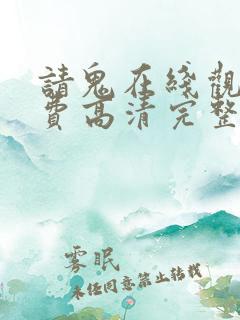 請鬼在綫觀
費高清完整
雾眠
未经同意禁止转载